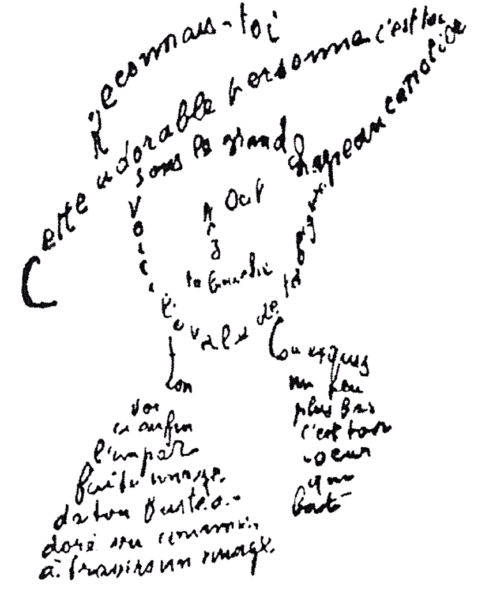 Reconnais-toi
Cette adorable personne c'est toi
sous le grand chapeau canotier
Oeil
Nez
la bouche
Voici l'ovale de ta figure
Ton
Cou exquis
voi
ci enfin
l'impar
faite image
de ton buste a-
doré vu comme
à travers un nuage.
un peu
plus bas
c'est ton
coeur
qui
bat